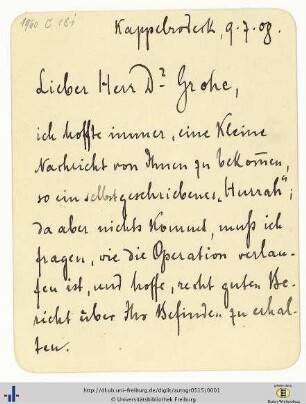 1960 C 181
Kappelrodeck, 9.7.08.
Lieber Herr Dr Grohe,
ich hoffte immer, eine kleine
Nachricht von Ihnen zu bekom̅en,
so ein selbstgeschriebenes „Hurrah“;
da aber nichts kommt, muß ich
fragen, wie die Operation verlau-
fen ist, und hoffe, recht guten Be-
richt über Ihr Befinden zu erhal-
ten.
http://dl.ub.uni-freiburg.de/diglit/autogr0515/0001
© Universitätsbibliothek Freiburg